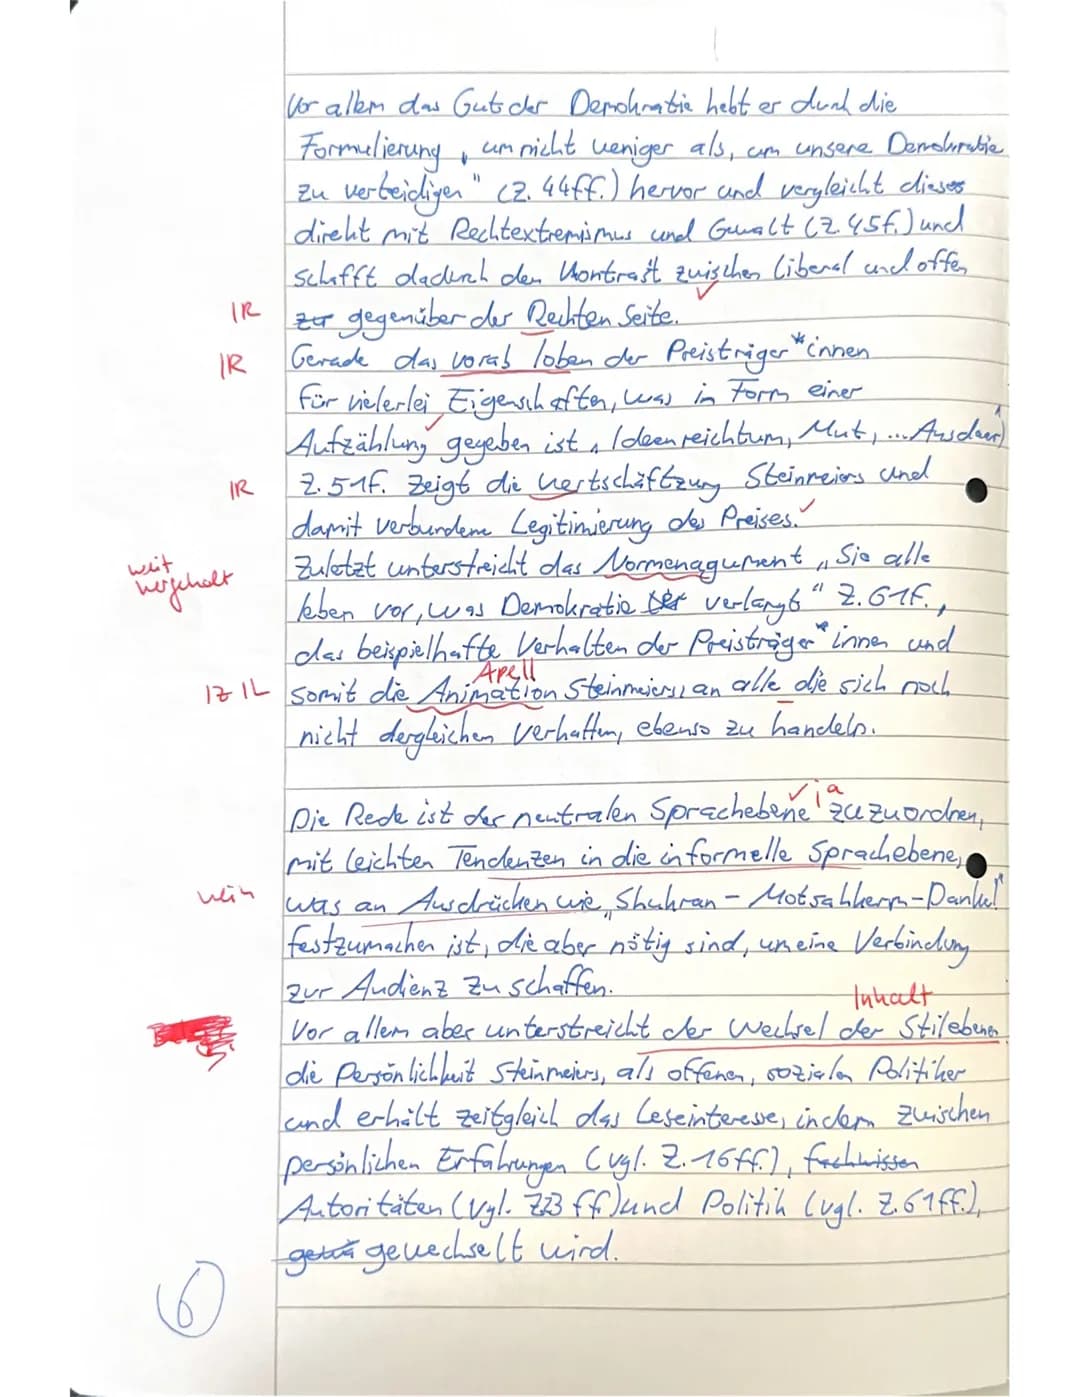 Vor allem das Gut der Demokratie hebt er durch die
Formulierung „um nicht weniger als, um unsere Demokratie
zu verteidigen" (Z. 44ff.) hervor und vergleicht dieses
direkt mit Rechtextremismus und Gewalt (Z. 45f.) und
schafft dadurch den Kontrast zwischen liberal und offen
IR zur gegenüber der Rechten Seite.
IR Gerade das vorab loben der Preisträger*innen
für vielerlei Eigenschaften, was in Form einer
Aufzählung gegeben ist „Ideenreichtum, Mut, ... Ausdauer"
IR Z. 51f. zeigt die Wertschäftzung Steinmeiers und
damit verbundene Legitimierung des Preises.
weit hergeholt
Zuletzt unterstreicht das Normenagument „Sie alle
leben vor, was Demokratie verlangt" Z. 61f.,
das beispielhafte Verhalten der Preisträger*innen und
Apell
IZ IL somit die Animation Steinmeiers, an alle die sich noch
nicht dergleichen verhalten, ebenso zu handeln.
ja
Die Rede ist der neutralen Sprachebene zuzuordnen,
mit leichten Tendenzen in die informelle Sprachebene,
nein was an Ausdrücken wie „Shukran - Motsahkerm - Danke!"
festzumachen ist, die aber nötig sind, um eine Verbindung
zur Audienz zu schaffen.
Inhalt
Vor allem aber unterstreicht der Wechsel der Stilebenen
die Persönlichkeit Steinmeiers, als offenen, sozialen Politiker
und erhält zeitgleich das Leseinteresse, indem zwischen
persönlichen Erfahrungen (vgl. Z. 16ff.), fachwissen
Autoritäten (vgl. Z23 ff) und Politik (vgl. Z. 61ff.),
gewechselt wird.
6